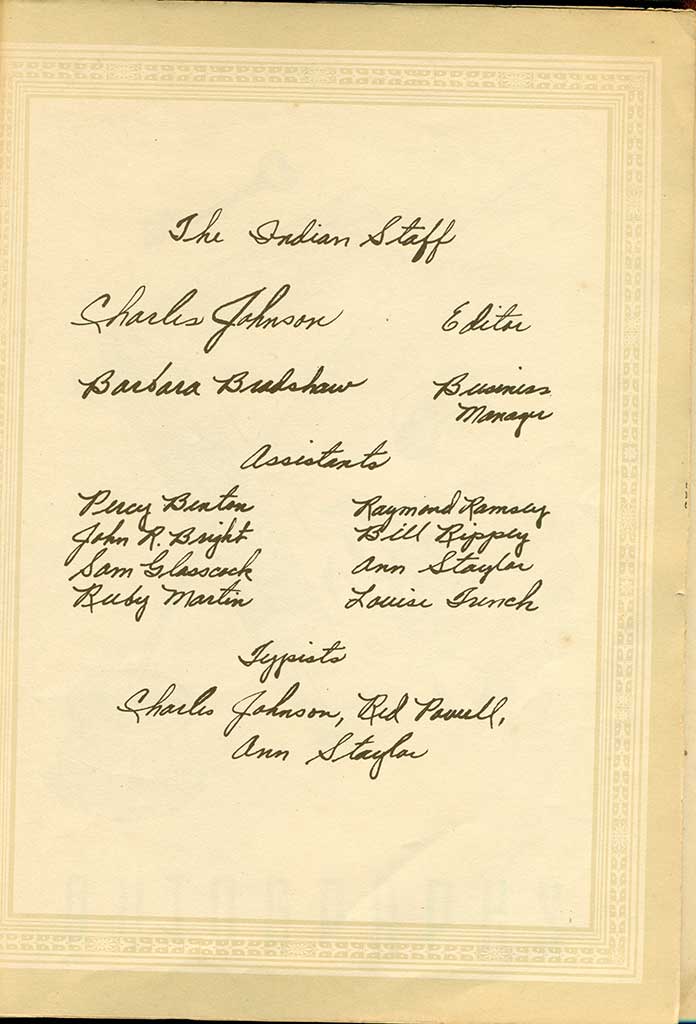 The Indian Staff
Charles Johnson Editor
Barbara Bradshaw Business
Manager
Assistants
Percy Benton Raymond Ramsey
John R. Bright Bill Rippey
Sam Glasscock Ann Staylor
Ruby Martin Louise French
Typists
Charles Johnson, Red Powell,
Ann Staylor